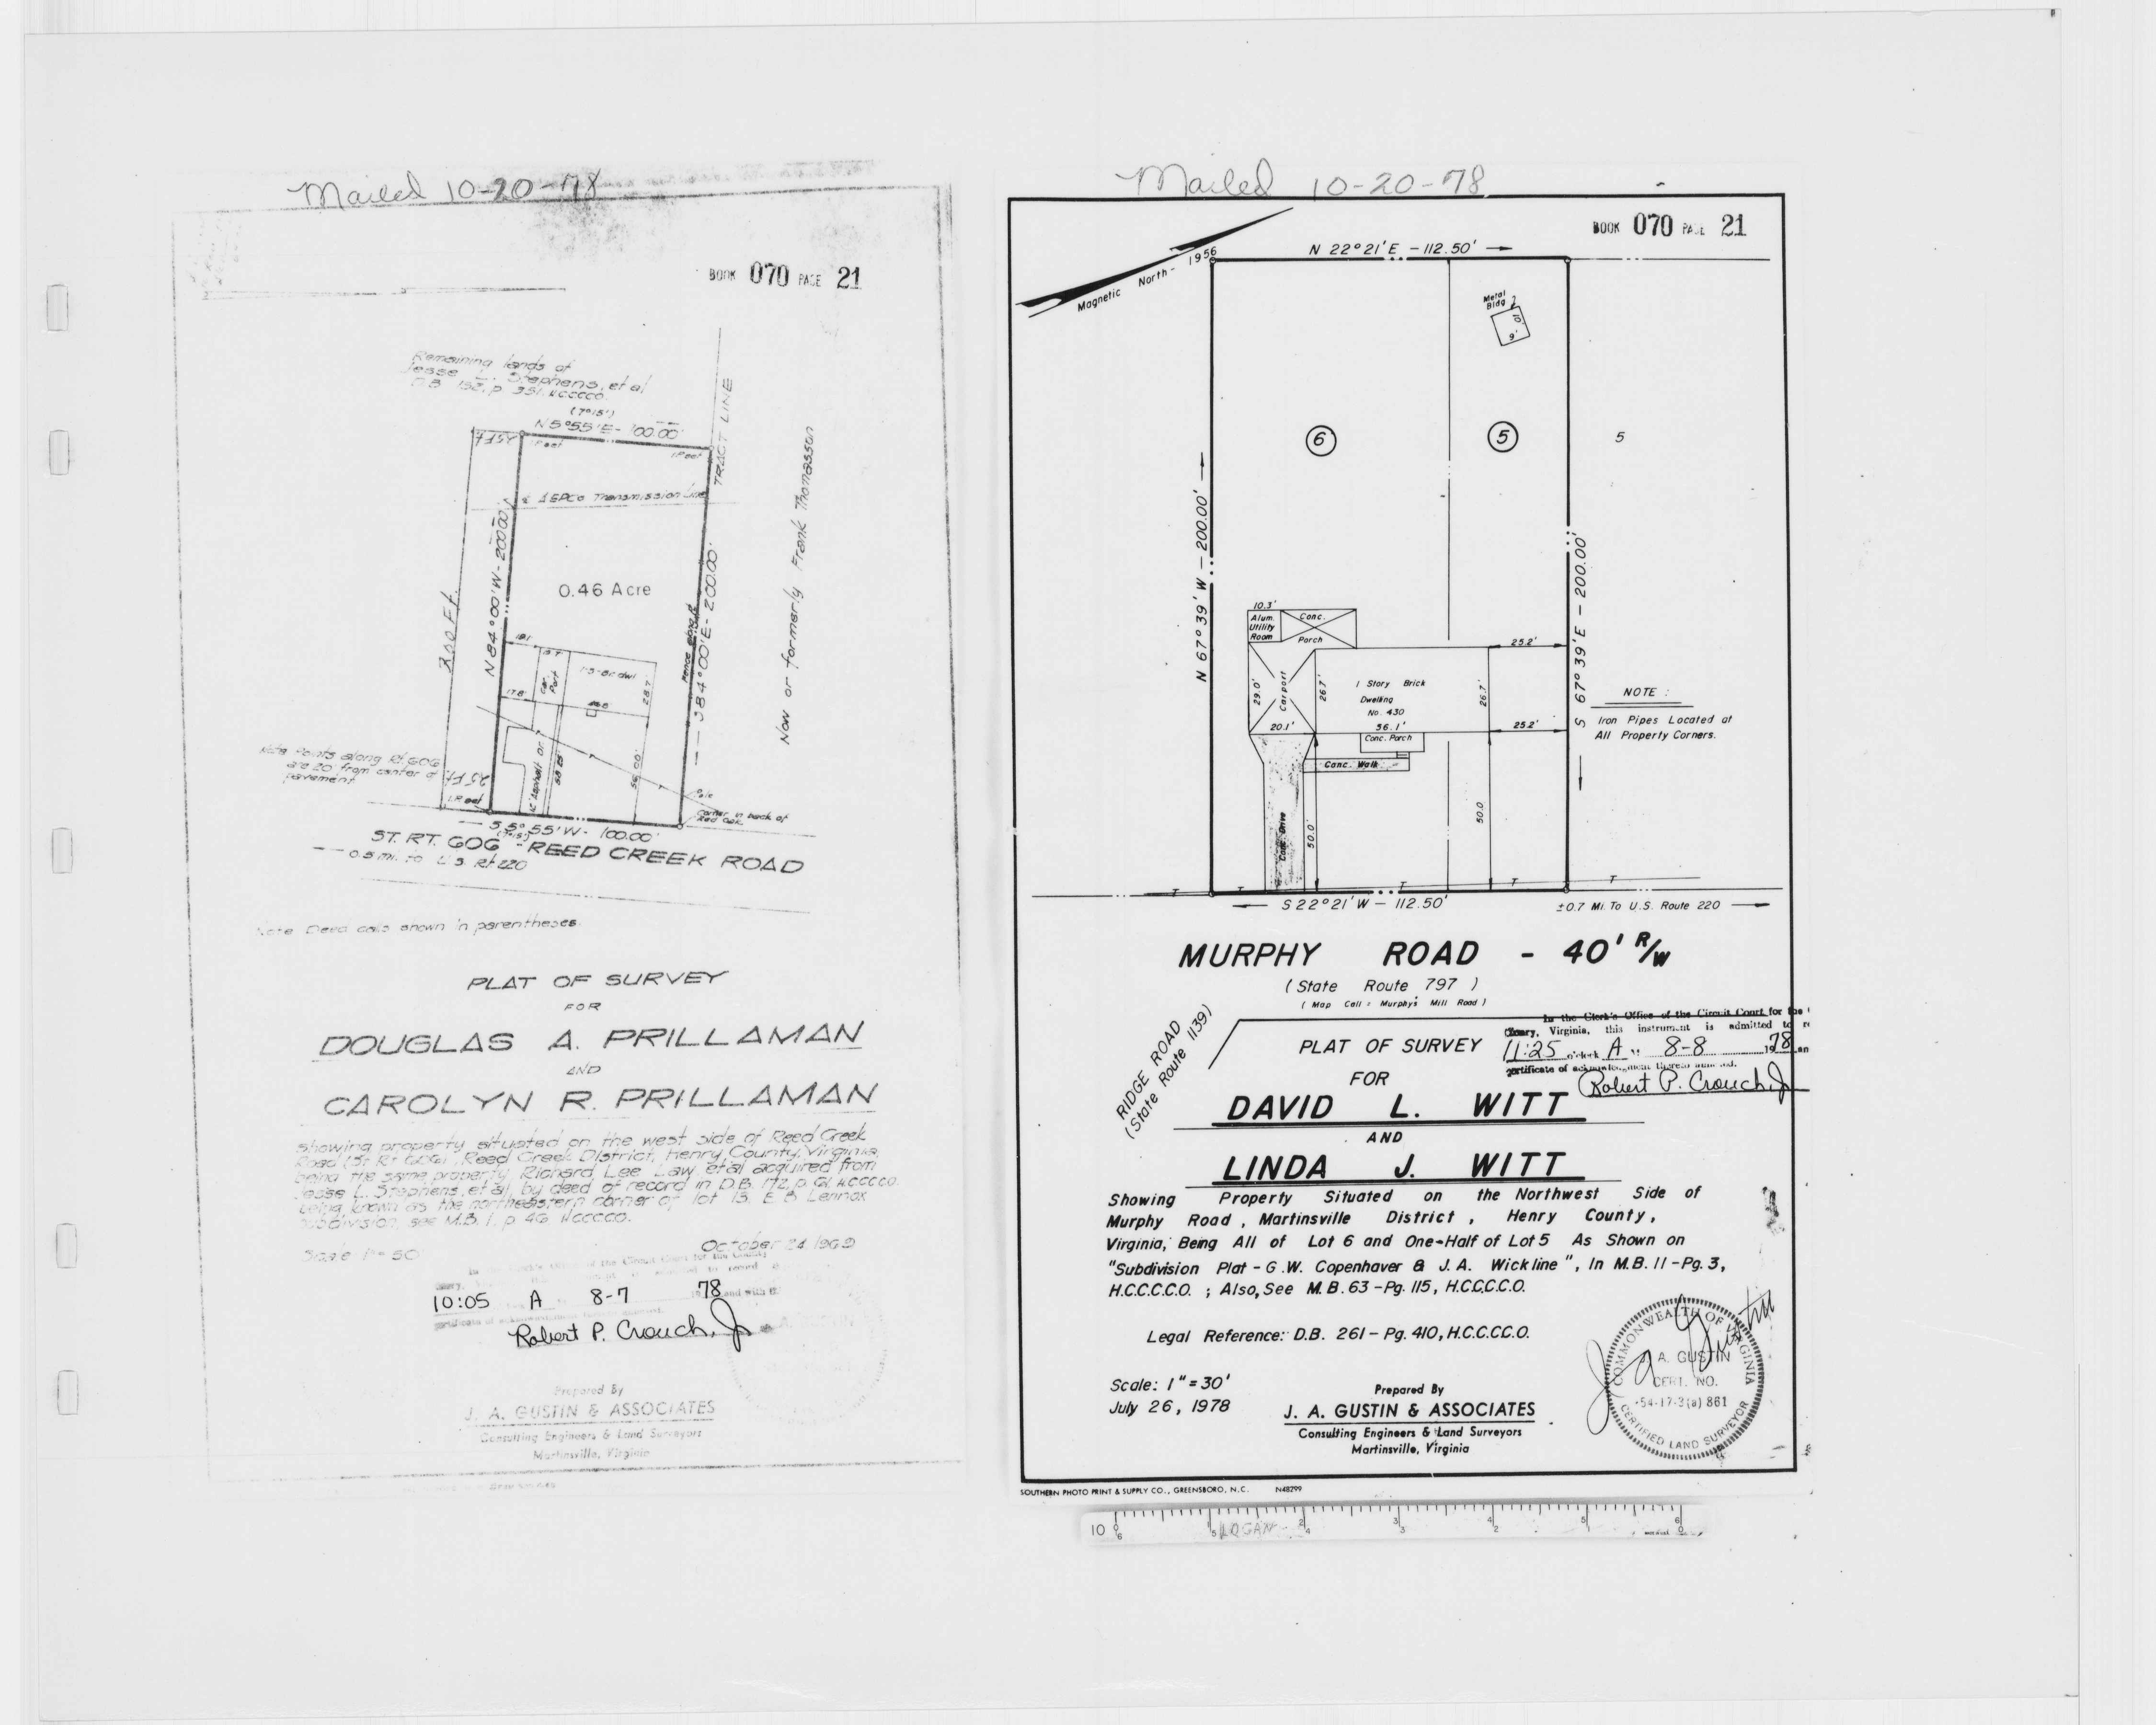 Mailed 10-20-78
BOOK 070 PAGE 21
Remaining lands of
Jesse L. Stephens, et al
D.B. 152, p. 351, H.C.C.C.C.O.
(7°15')
N 5°55' E - 100.00'
TRACT LINE
Transmission Line
N 84°00' W - 200.00'
200 Ft.
0.46 Acre
S 84°00' E - 200.00'
Now or formerly Frank Thomasson
Car
Port
17.8
28.7
Note: Points along Rt. 606
are 20' from center of
pavement.
25 Ft
Pole
Corner in back of
Red Oak
S 5°55' W - 100.00'
ST. RT. 606 - REED CREEK ROAD
0.5 mi. to U.S. Rt 220
Note: Deed calls shown in parentheses.
PLAT OF SURVEY
FOR
DOUGLAS A. PRILLAMAN
AND
CAROLYN R. PRILLAMAN
showing property situated on the west side of Reed Creek
Road (St. Rt. 606), Reed Creek District, Henry County, Virginia,
being the same property Richard Lee Law et al acquired from
Jesse L. Stephens, et al, by deed of record in D.B. 172, p. 61, H.C.C.C.C.O.
being known as the northeastern corner of lot 13, E B Lennox
subdivision, see M.B. 1, p. 46, H.C.C.C.C.O.
Scale 1" = 50'
October 24, 1969
10:05 A 8-7 78 and with
Robert P. Crouch, Jr
Prepared By
J. A. GUSTIN & ASSOCIATES
Consulting Engineers & Land Surveyors
Martinsville, Virginia
Mailed 10-20-78
BOOK 070 PAGE 21
Magnetic North - 1956
N 22°21' E - 112.50'
Metal
Bldg
10'
9'
6
5
5
N 67°39' W - 200.00'
S 67°39' E - 200.00'
10.3'
Alum.
Utility
Room
Conc.
Porch
25.2'
29.0'
Carport
26.7'
1 Story Brick
Dwelling
No. 430
56.1'
26.7'
20.1'
25.2'
Conc. Porch
Conc. Walk
Conc. Drive
50.0'
50.0
NOTE :
Iron Pipes Located at
All Property Corners.
T T T T T
S 22°21' W - 112.50'
±0.7 Mi. To U.S. Route 220
MURPHY ROAD - 40' R/W
(State Route 797)
(Map Call: Murphy's Mill Road)
RIDGE ROAD
(State Route 1139)
In the Clerk's Office of the Circuit Court for the
Henry, Virginia, this instrument is admitted to
11:25 o'clock A M 8-8 1978 an
certificate of acknowledgment thereto annexed.
Robert P. Crouch, Jr
PLAT OF SURVEY
FOR
DAVID L. WITT
AND
LINDA J. WITT
Showing Property Situated on the Northwest Side of
Murphy Road, Martinsville District, Henry County,
Virginia, Being All of Lot 6 and One-Half of Lot 5 As Shown on
"Subdivision Plat - G.W. Copenhaver & J.A. Wickline", In M.B. 11-Pg. 3,
H.C.C.C.C.O. ; Also, See M.B. 63-Pg. 115, H.C.C.C.C.O.
Legal Reference: D.B. 261-Pg. 410, H.C.C.C.C.O.
Scale: 1"=30'
July 26, 1978
Prepared By
J. A. GUSTIN & ASSOCIATES
Consulting Engineers & Land Surveyors
Martinsville, Virginia
COMMONWEALTH OF VIRGINIA
J. A. GUSTIN
CERT. NO.
54-17-3(a) 861
CERTIFIED LAND SURVEYOR
J A Gustin
SOUTHERN PHOTO PRINT & SUPPLY CO., GREENSBORO, N.C. N48299
10 LOGAN